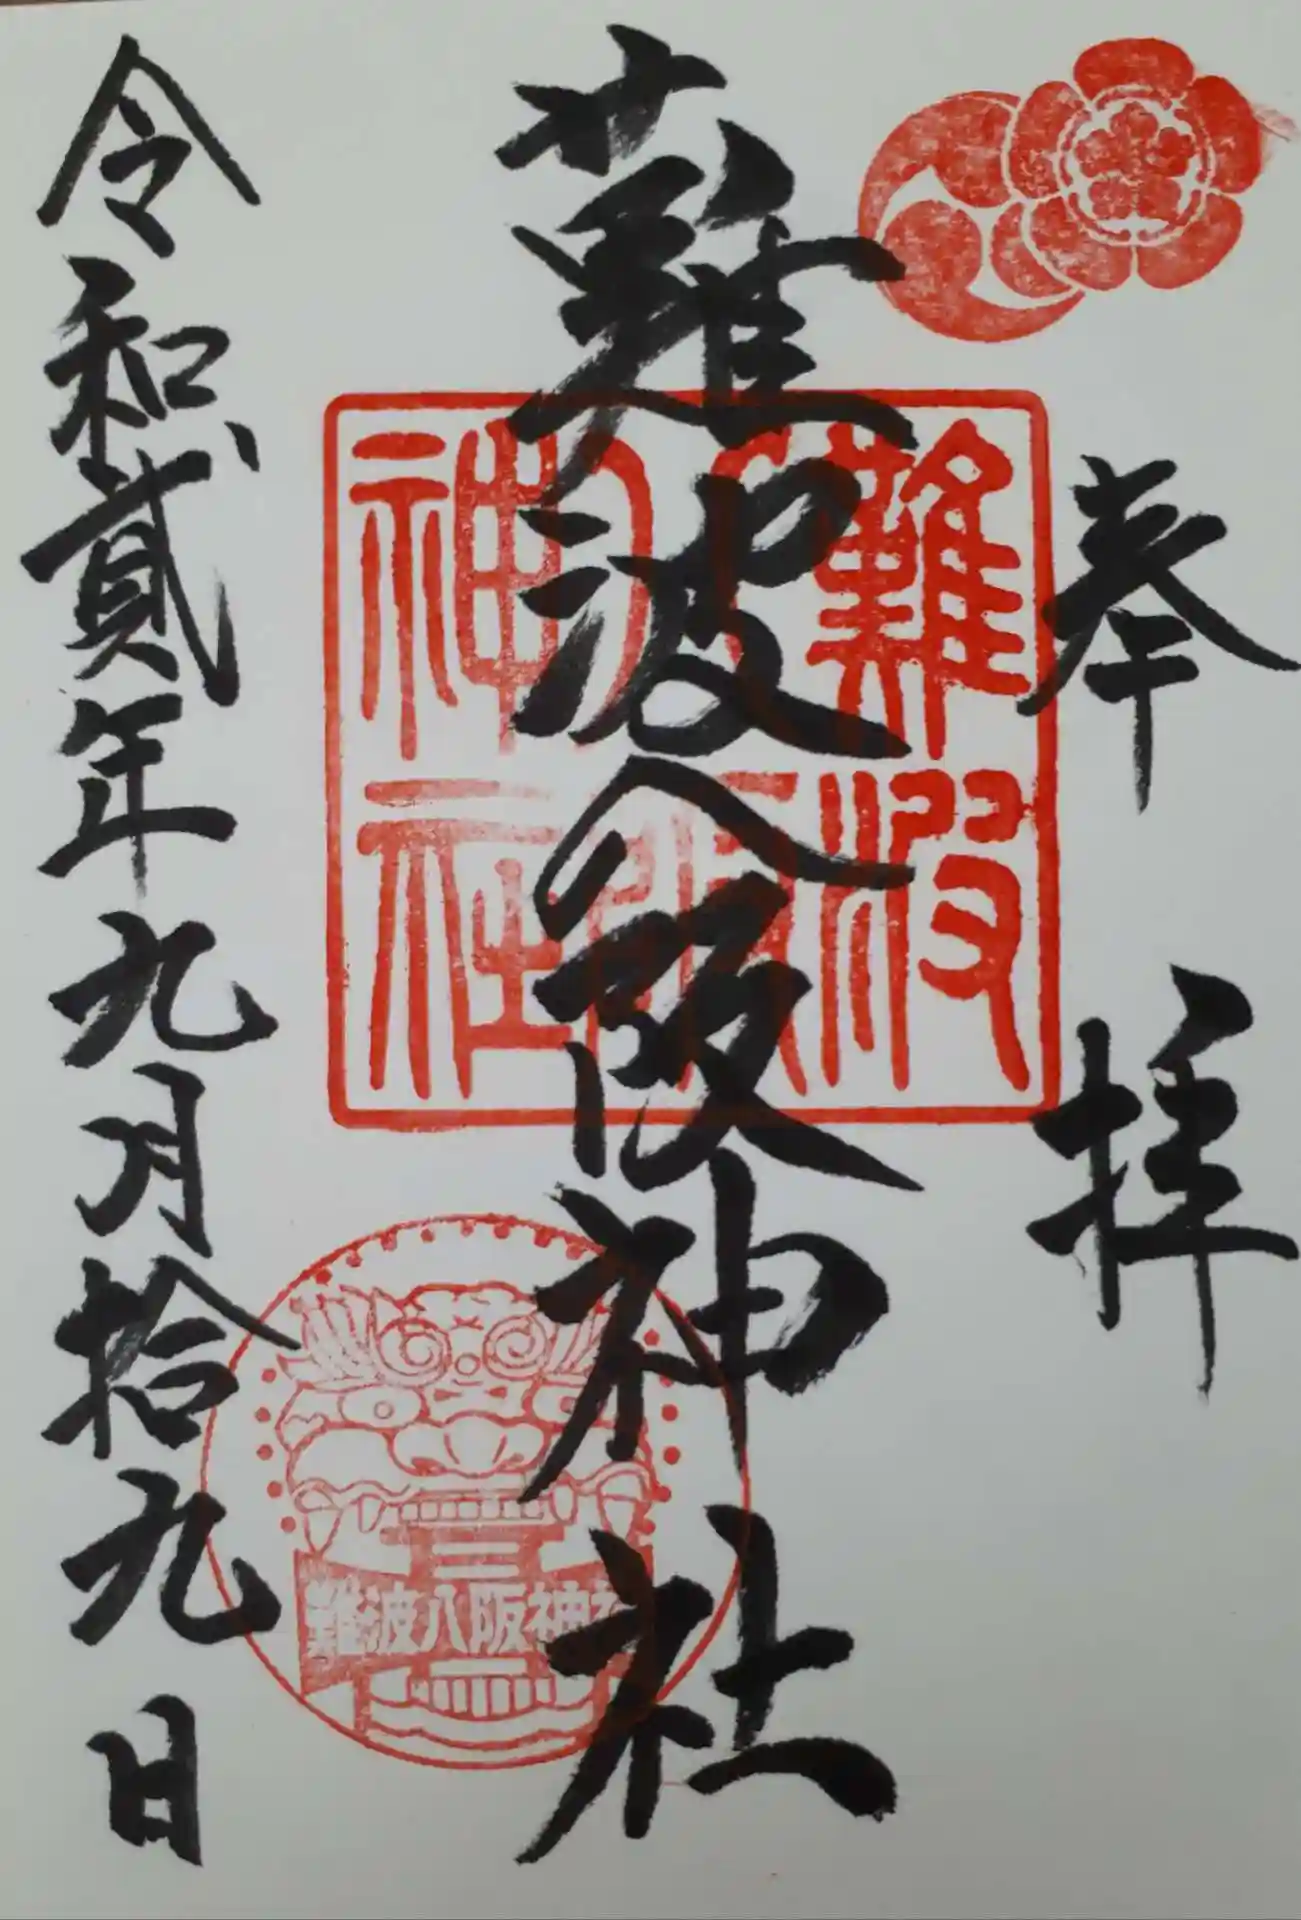 奉拝
難波八阪神社
令和貳年九月拾九日
難波
八阪
神社
難波八阪神社